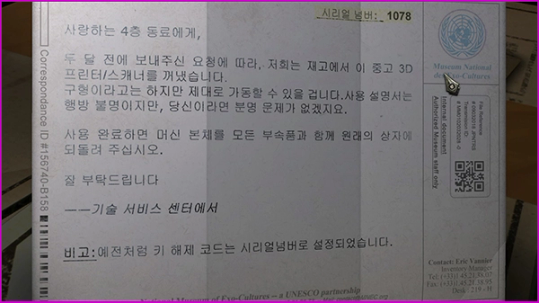 시리얼 넘버: 1078
사랑하는 4층 동료에게,
두 달 전에 보내주신 요청에 따라, 저희는 재고에서 이 중고 3D
프린터/스캐너를 꺼냈습니다.
구형이라고는 하지만 제대로 가동할 수 있을 겁니다.사용 설명서는
행방 불명이지만, 당신이라면 분명 문제가 없겠지요.
사용 완료하면 머신 본체를 모든 부속품과 함께 원래의 상자에
되돌려 주십시오.
잘 부탁드립니다
――기술 서비스 센터에서
비고:예전처럼 키 해제 코드는 시리얼넘버로 설정되었습니다.
Correspondance ID #156740-B158
Museum National
des Evo-Cultures
Internal document
Authorized Museum staff only
File Reference
Contact: Eric
Inventory Manager
National Museum of Evo-Cultures -- a UNESCO partnership